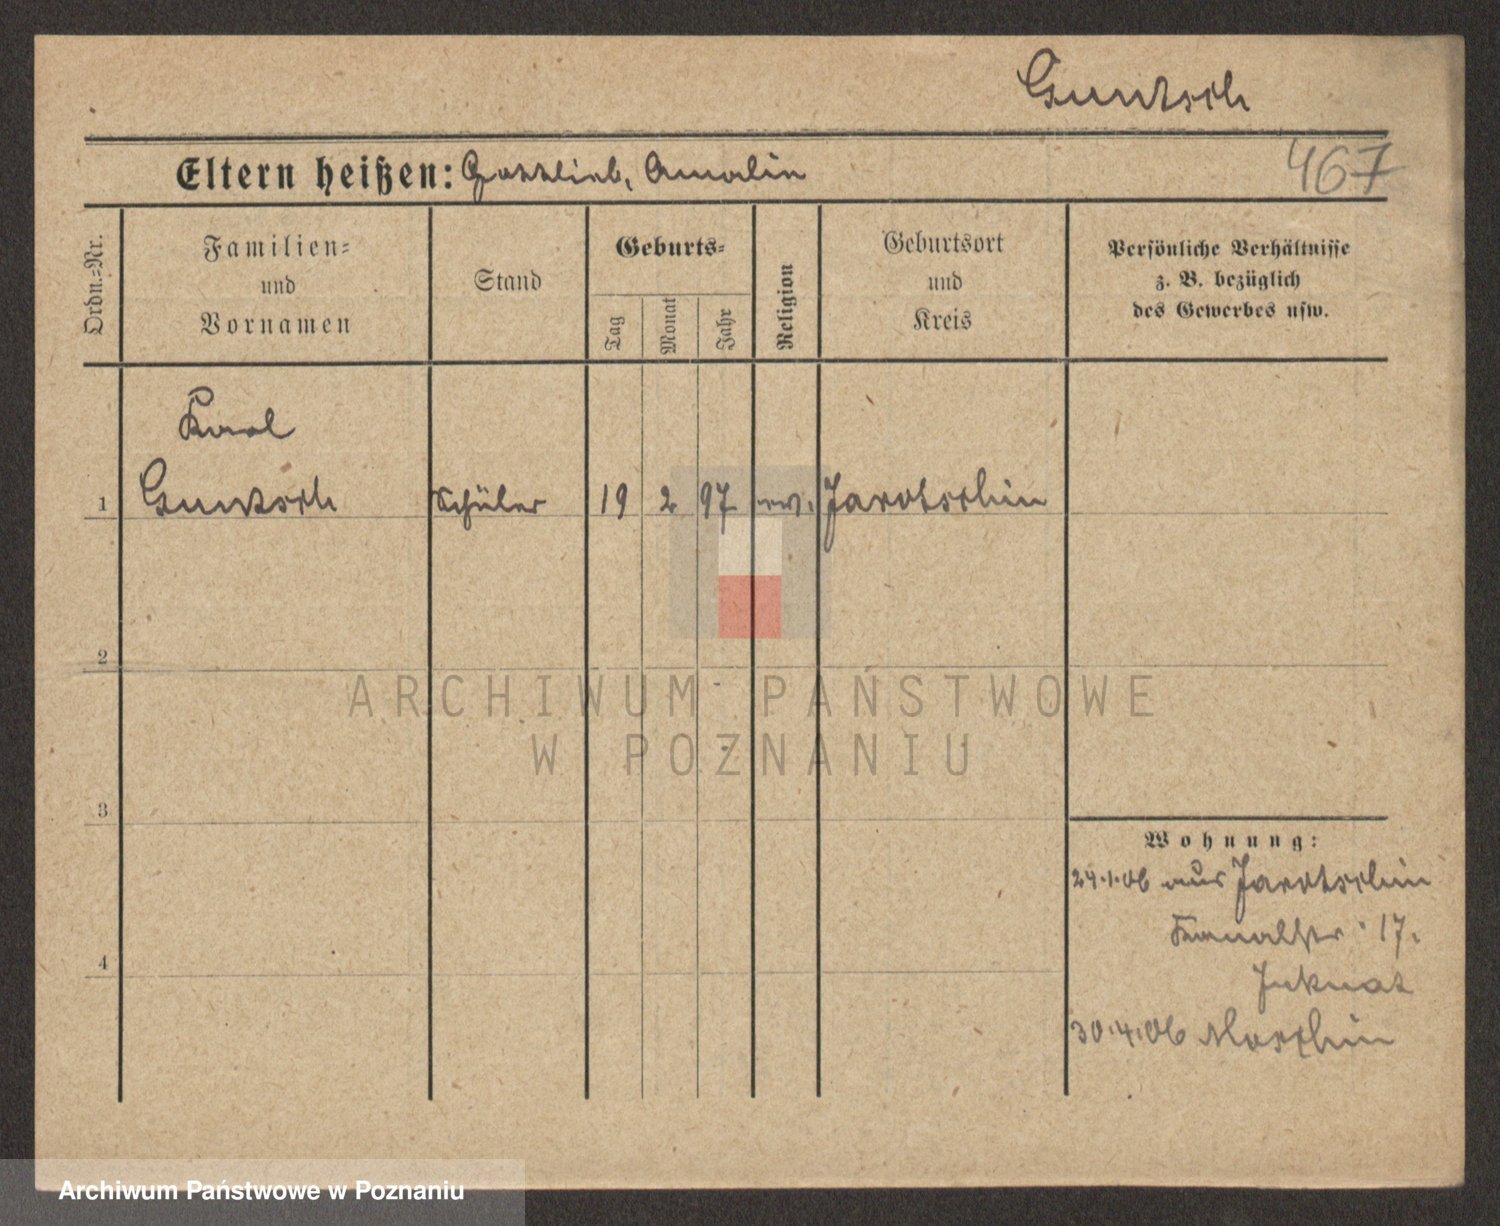 Guntsch
Eltern heißen: Gottlieb, Amalie
467
Ordn.-Nr.
Familien-
und
Vornamen
Stand
Geburts-
Tag
Monat
Jahr
Religion
Geburtsort
und
Kreis
Persönliche Verhältnisse
z. B. bezüglich
des Gewerbes usw.
Karl
1 Guntsch Schüler 19 2 97 ev. Jarotschin
2
ARCHIWUM PAŃSTWOWE
W POZNANIU
3
Wohnung:
24.1.06 aus Jarotschin
Kanalstr. 17.
4
30.4.06
Archiwum Państwowe w Poznaniu